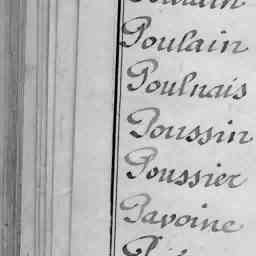 Poulain
Poulnais
Poussin
Poussier
Pavoine